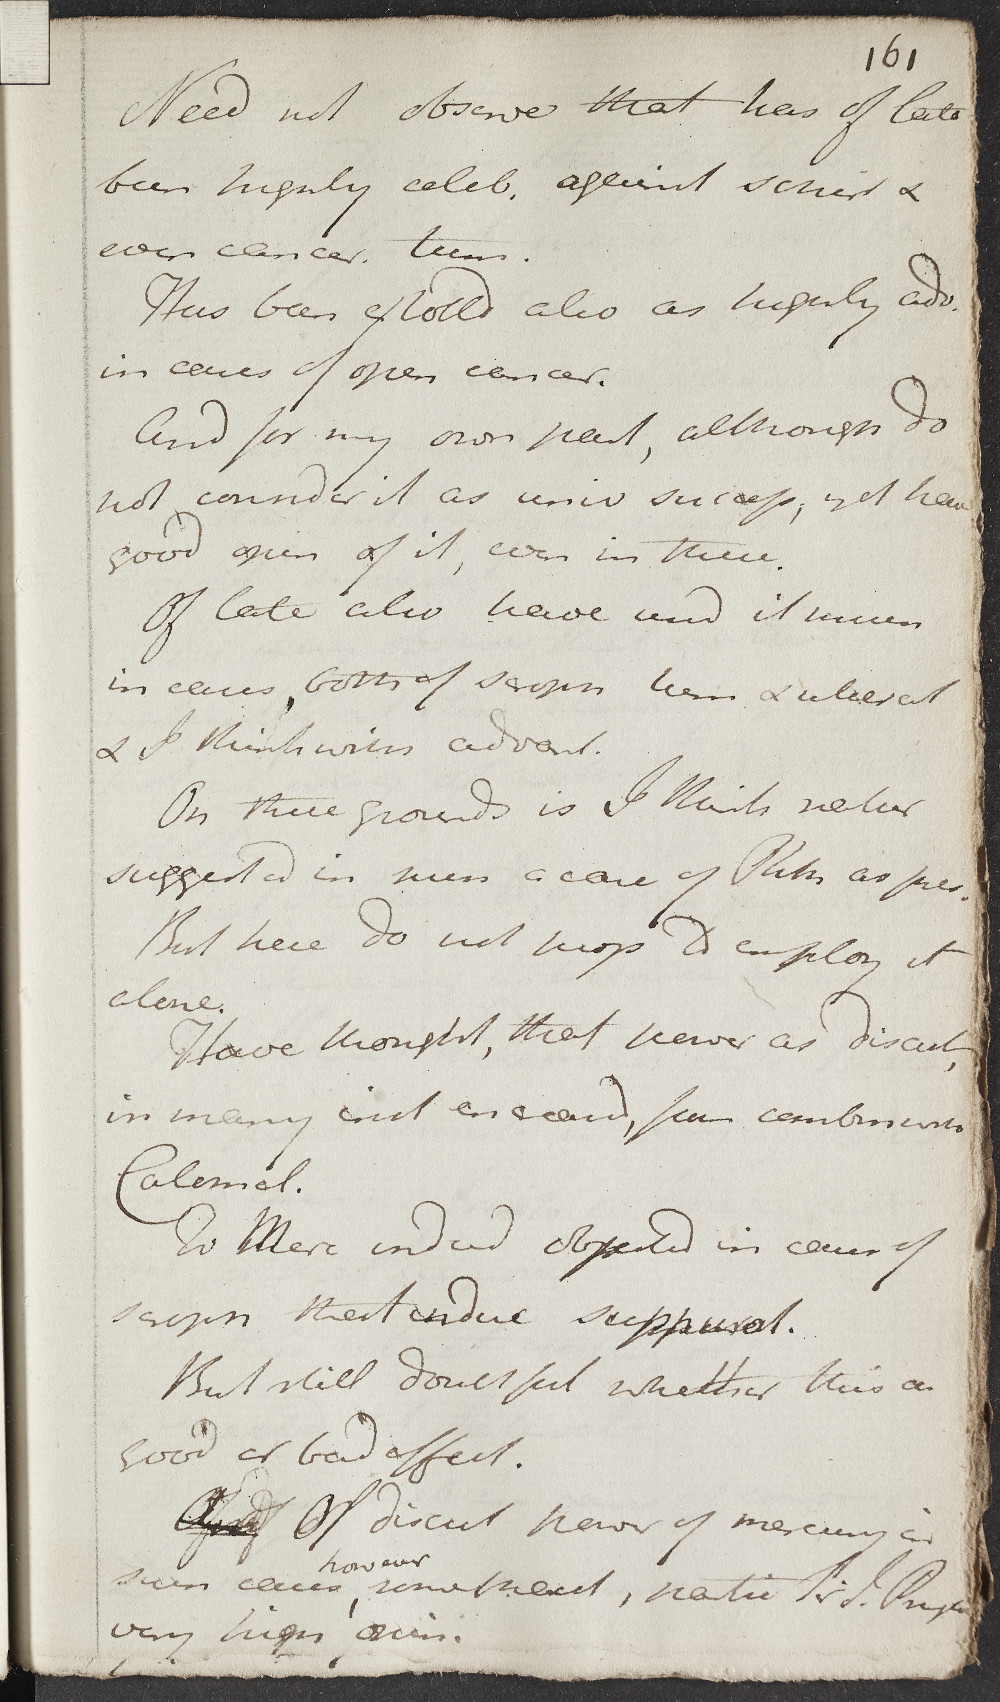 161
Need not observe that has of late
been highly celeb. against schirr &
even cancer. tum.
Has been extolld also as highly adv.
in cases of open cancer.
And for my own part, although do
not consider it as univ success, yet have
good opin of it, even in these.
Of late also have used it much
in cases, both of scroph tum & ulcerat
& I think with advant.
On these grounds is I think natur
suggested in such a case of Pththis as pres.
But here do not prop to employ it
alone.
Have thought, that power as discut,
in many inst encreasd, from combin with
Calomel.
To Merc indeed objected in cases of
scroph that induce suppurat.
But still doubtful whether this a
good or bad effect.
Of discut power of mercury in
such cases, however, somewhat, Sir J. Pringle
very high opin.